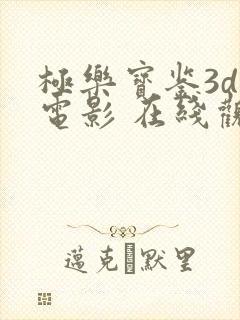 極樂寶鉴3d
電影 在綫觀
邁克·默里